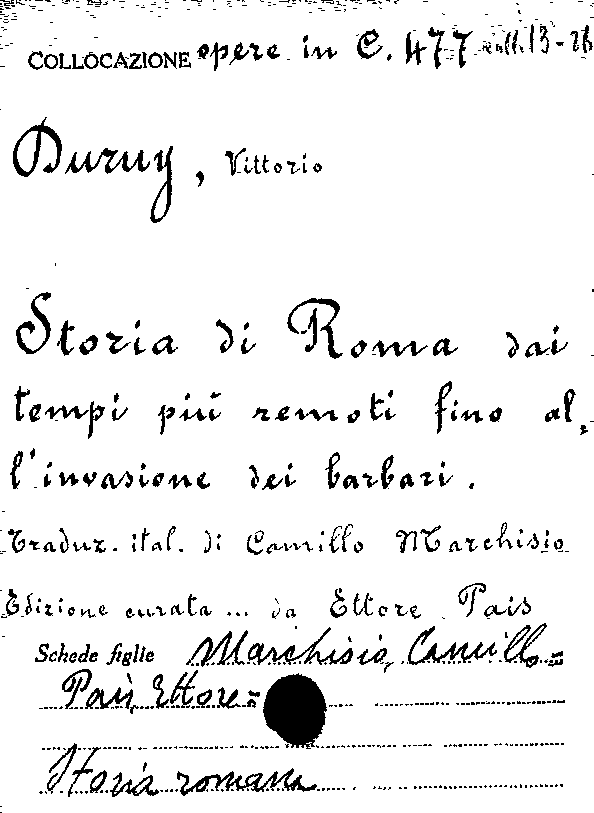 COLLOCAZIONE opere in C. 477 coll. 13-26
Duruy, Vittorio
Storia di Roma dai
tempi più remoti fino al,
l'invasione dei barbari.
Traduz. ital. di Camillo Marchisio
Edizione curata ... da Ettore Pais
Schede figlie Marchisio, Camillo =
Pais, Ettore =
Storia romana